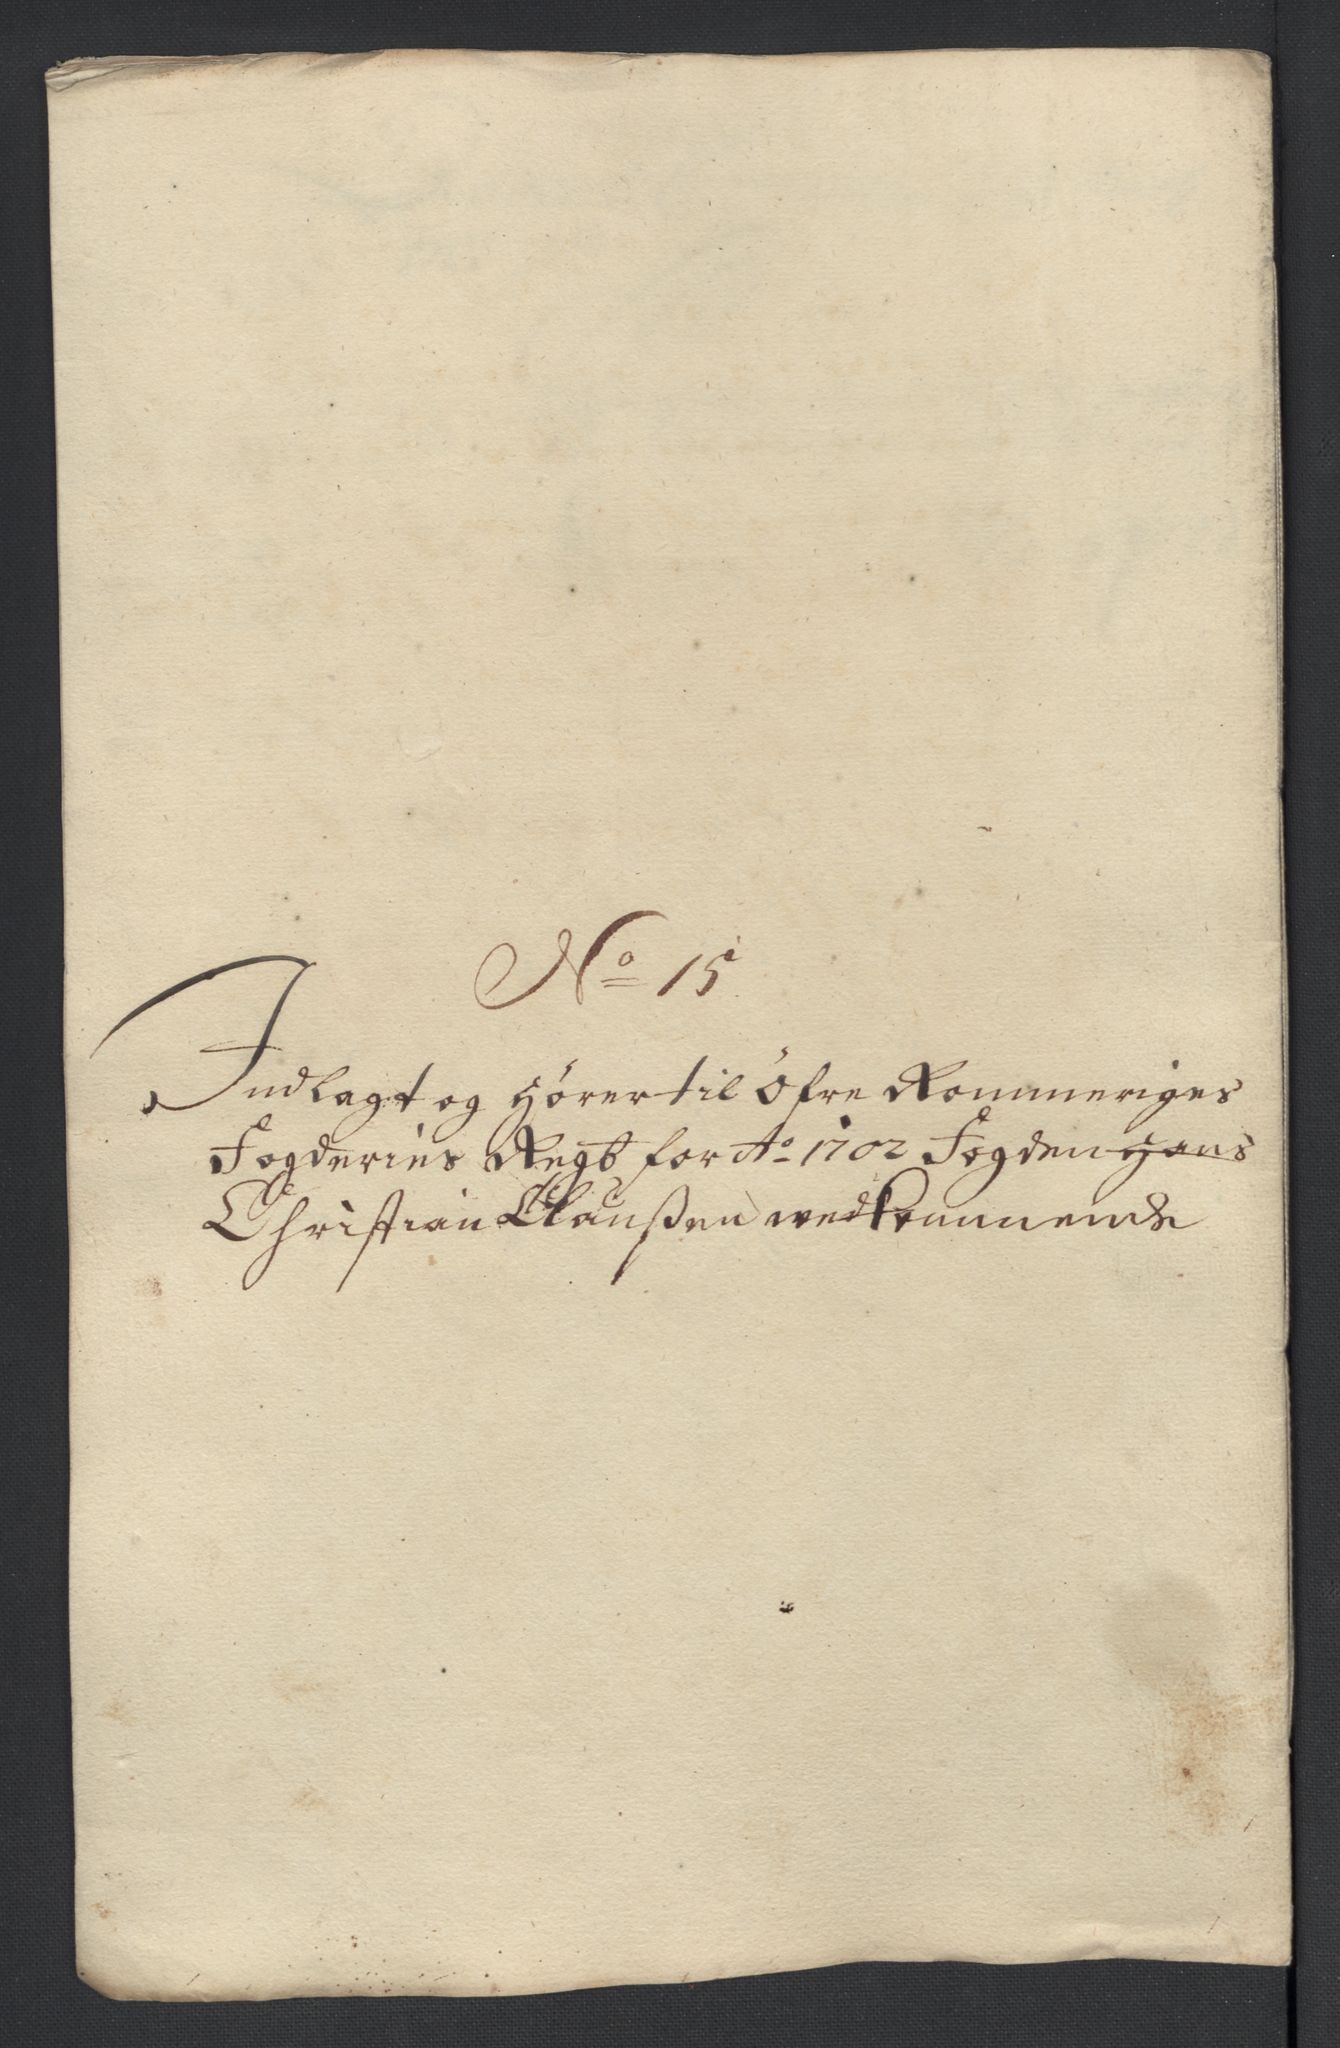 No 15
Indlagt og Hörer til Öfre Rommeriges
Fogderies Regb for Ao 1702 Fogden Hans
Christian Claußen wedkommende